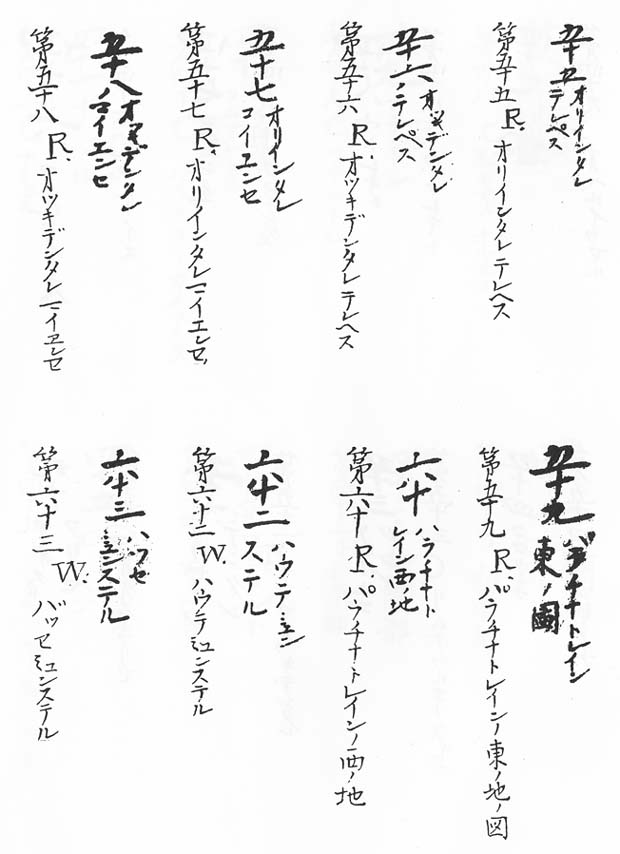 五十五オリインタレ
テレペス
第五十五 R. オリインタレテレヘス
五十六オツキデンタレ
ノテレペス
第五十六 R. オツキデンタレテレヘス
五十七オリインタレ
コイエンセ
第五十七 R. オリインタレコイエンセ
五十八オツキデンタレ
ノコイエンセ
第五十八 R. オツキデンタレコイエンセ
五十九パラチナトレイン
東ノ圖
第五十九 R. パラチナトレインノ東ノ地ノ図
六十ハラチナト
レイン西ノ地
第六十 R. パラチナトレインノ西ノ地
六十二ハウテミュン
ステル
第六十二 W. ハウテミュンステル
六十三ハッセ
ミュンステル
第六十三 W. バッセミュンステル